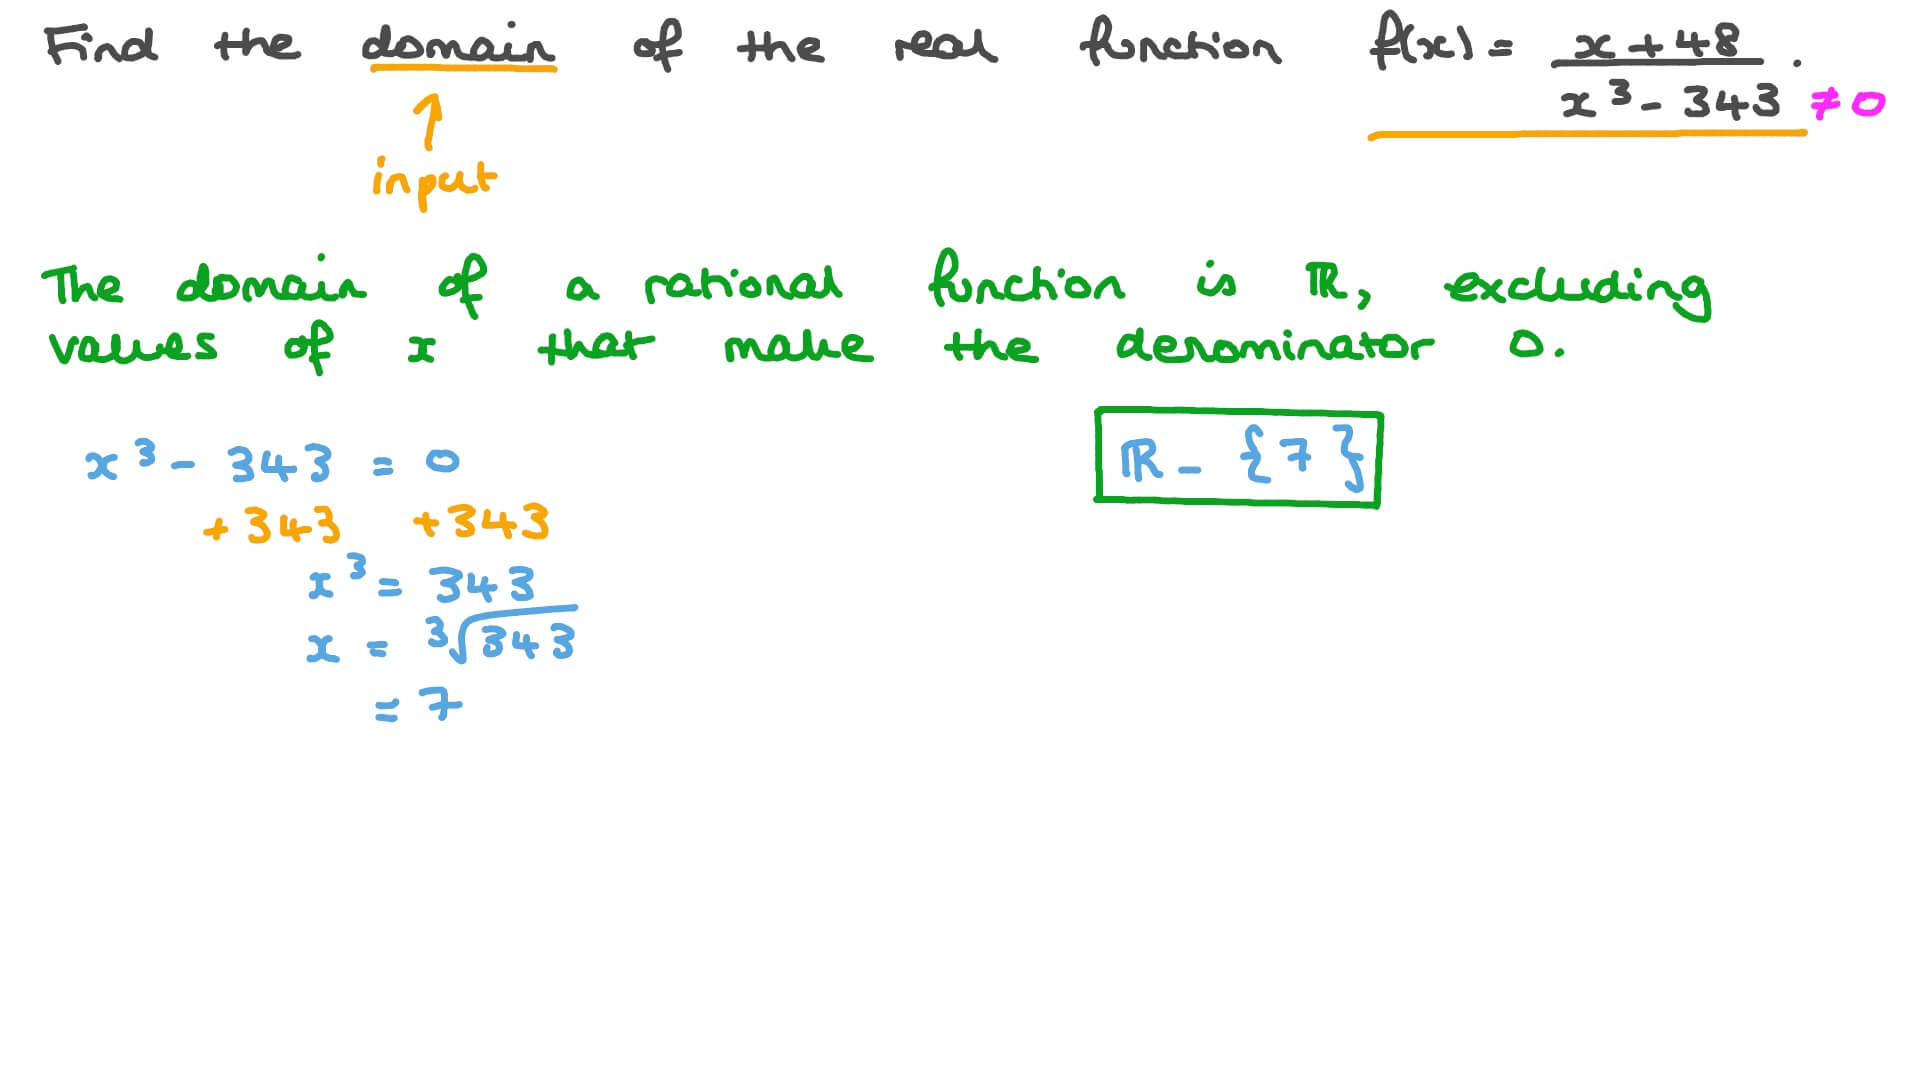 Find the domain of the real function f(x) = (x + 48)/(x³ - 343). ≠ 0
↑
input
The domain of a rational function is ℝ, excluding
values of x that make the denominator 0.
x³ - 343 = 0
+343 +343
x³ = 343
x = ³√343
= 7
ℝ - {7}